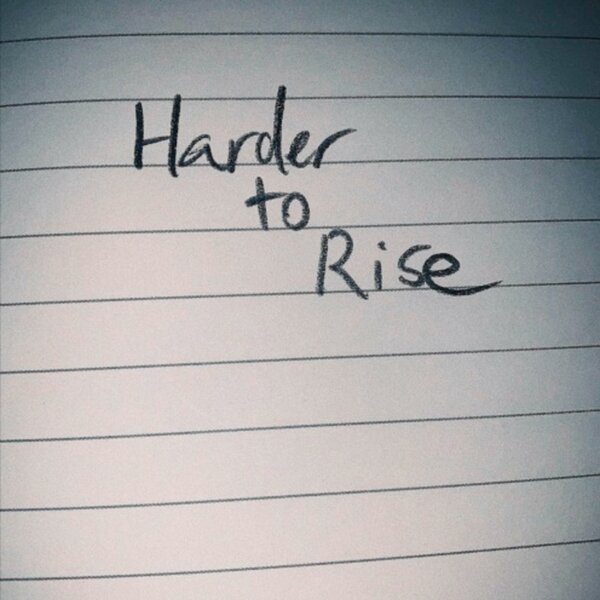 Harder
to
Rise